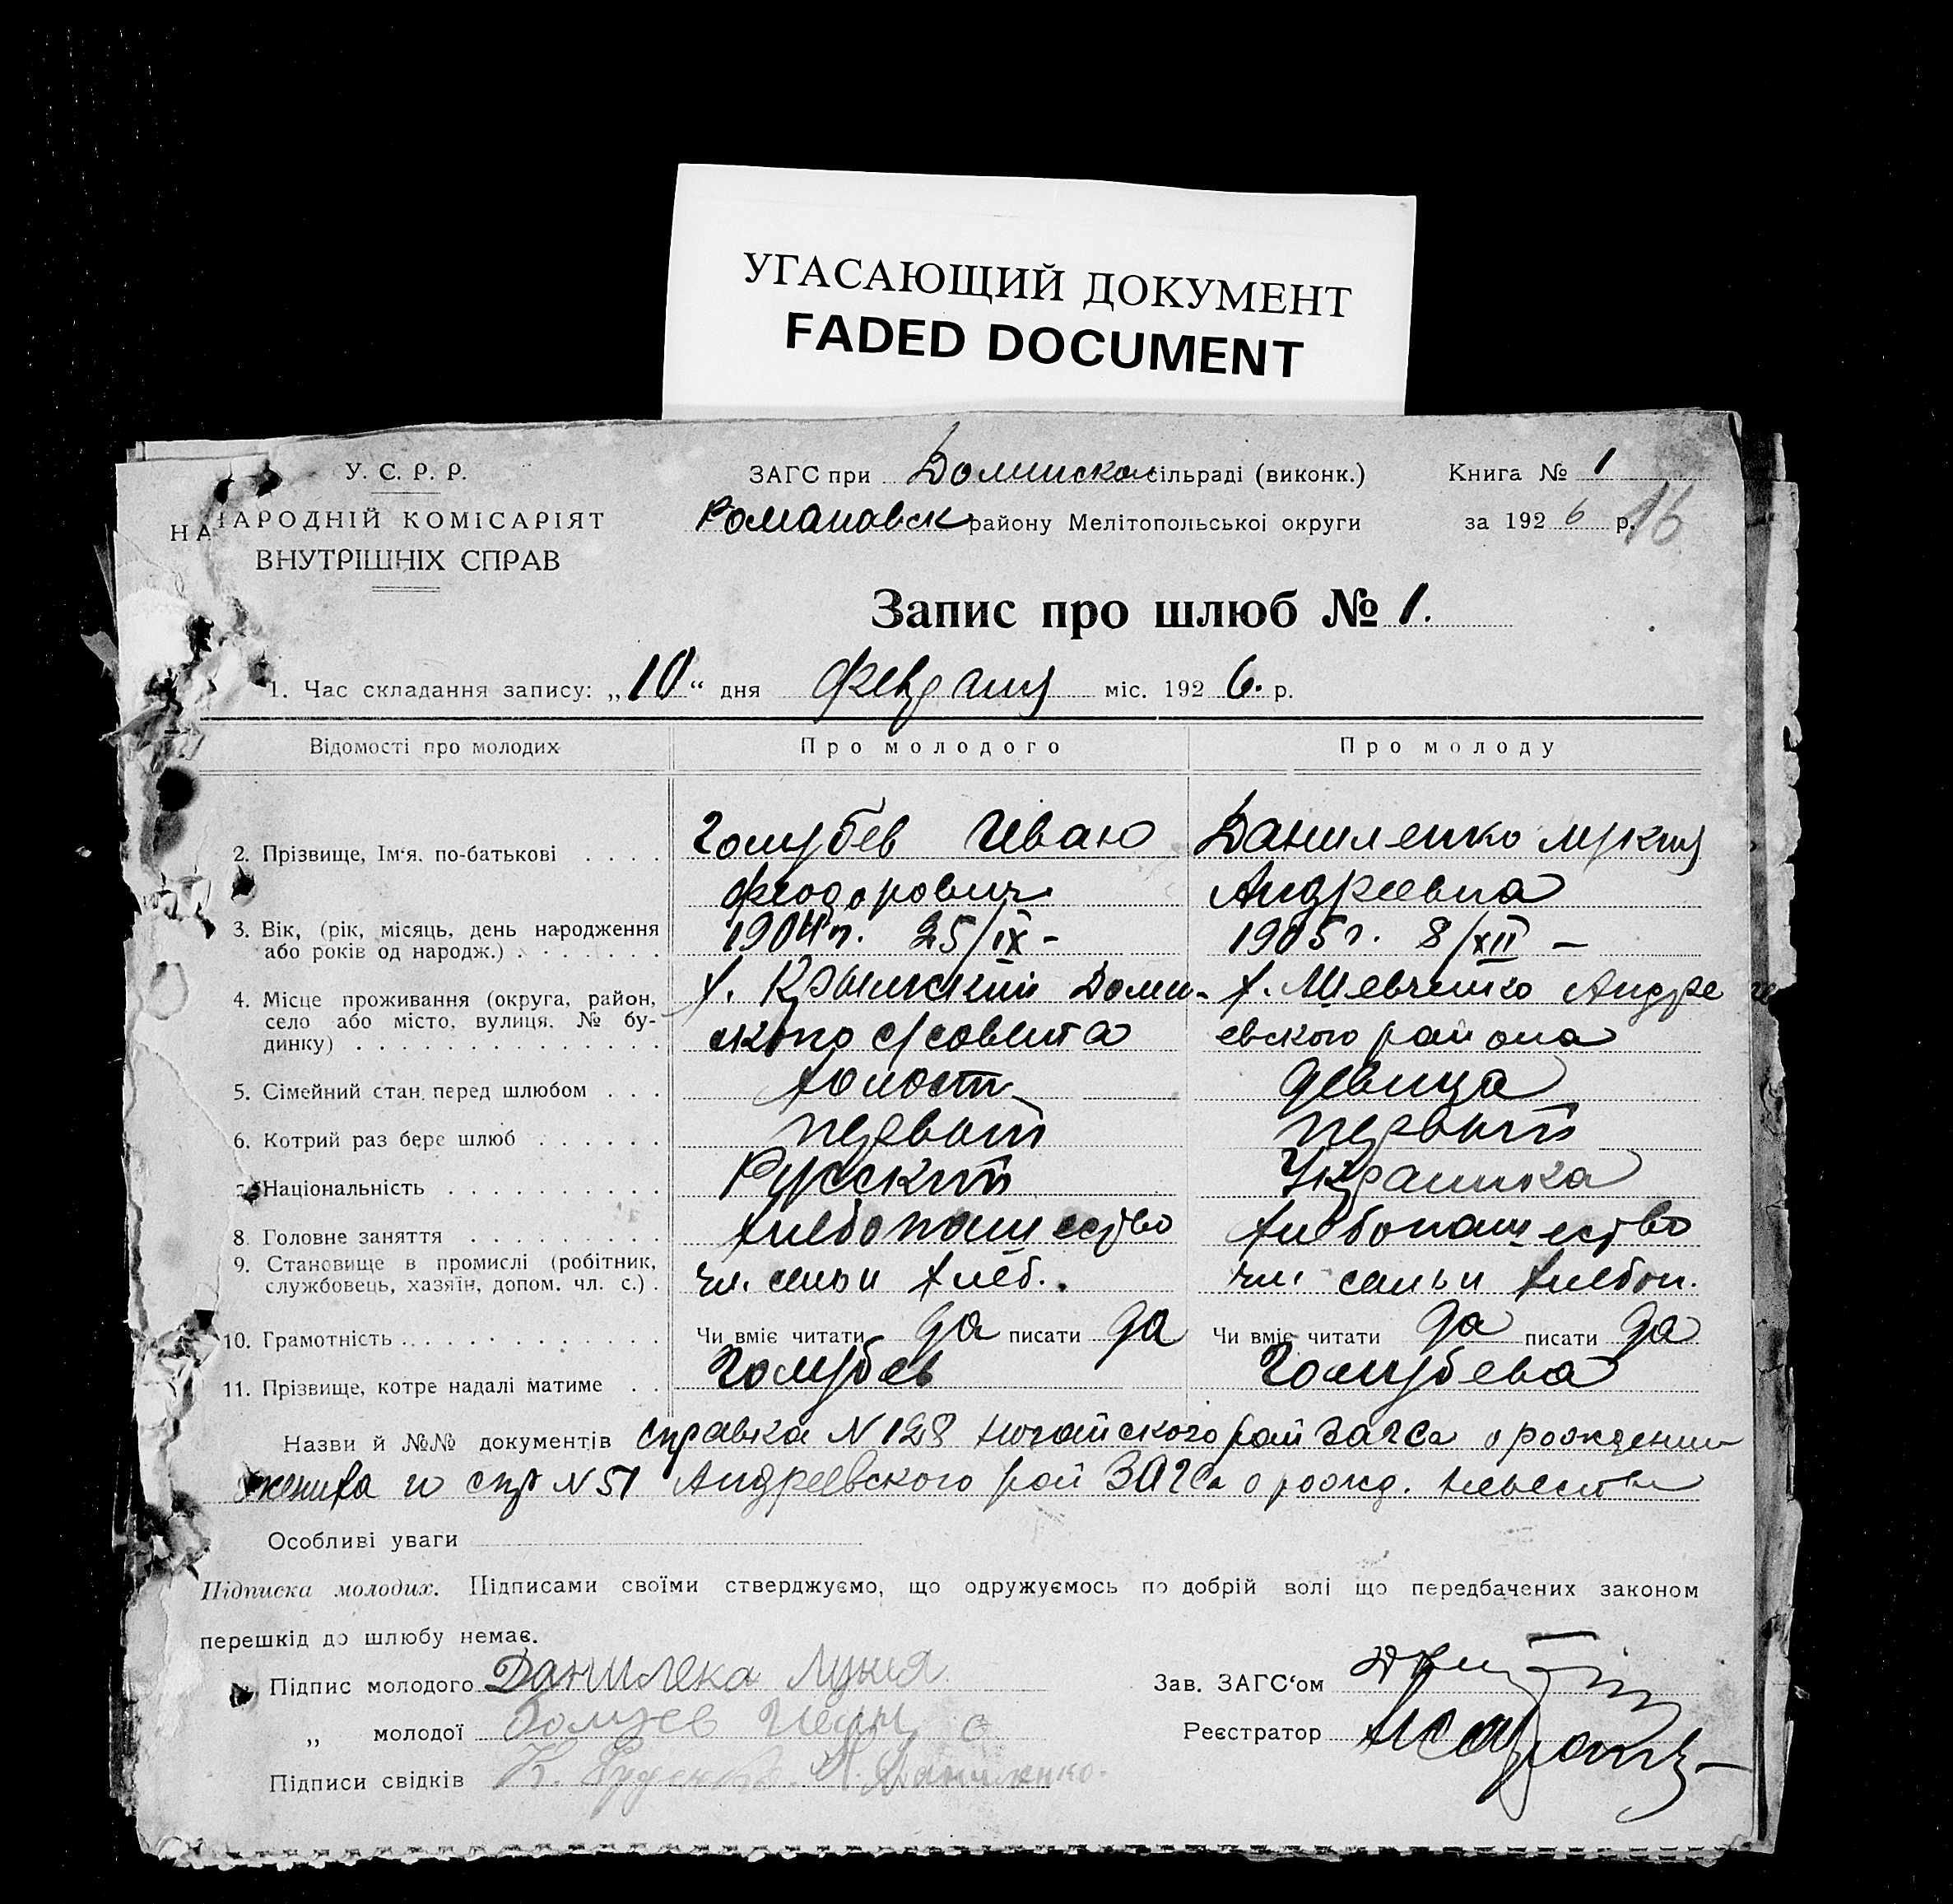 УГАСАЮЩИЙ ДОКУМЕНТ
FADED DOCUMENT
У. С. Р. Р.
НАРОДНІЙ КОМІСАРІЯТ
НА
ВНУТРІШНІХ СПРАВ
ЗАГС при сільраді (виконк.)
Романовск району Мелітопольської округи
Книга № 1
за 1926 р.
16
Запис про шлюб № 1.
1. Час складання запису: „10“ дня февраля міс. 1926. р.
Відомості про молодих
Про молодого
Про молоду
2. Прізвище, Ім‘я, по-батькові . . . .
Голубев Иван
Феодорович
Даниленко Лукия
Андреевна
3. Вік, (рік, місяць, день народження
або років од народж.) . . . . . . .
1904 г. 25/IX -
1905 г. 8/XII —
4. Місце проживання (округа, район,
село або місто, вулиця, № бу-
динку) . . . . . . . . . . . . . .
х. Крымский Доли-
нского с/совета
х. Шевченко Андре
евского района
5. Сімейний стан перед шлюбом . . .
холост
девица
6. Котрий раз бере шлюб . . . . . .
первый
первый
7. Національність . . . . . . . . . .
Русский
Украинка
8. Головне заняття . . . . . . . . .
хлебопашество
хлебопашество
9. Становище в промислі (робітник,
службовець, хазяїн, допом. чл. с.) .
чл. семьи хлеб.
чл. семьи хлебоп.
10. Грамотність . . . . . . . . . . . .
Чи вміє читати да писати да
Чи вміє читати да писати да
11. Прізвище, котре надалі матиме . .
Голубев
Голубева
Назви й №№ документів справка N 128 Ногайского рай ЗАГСа о рождении
жениха и спр N 51 Андреевского рай ЗАГСа о рожд. невесты
Особливі уваги
Підписка молодих. Підписами своїми стверджуємо, що одружуємось по добрій волі що передбачених законом
перешкід до шлюбу немає.
Підпис молодого Данилека Лукия
„ молодої
Підписи свідків К. Даниленко.
Зав. ЗАГС‘ом
Реєстратор